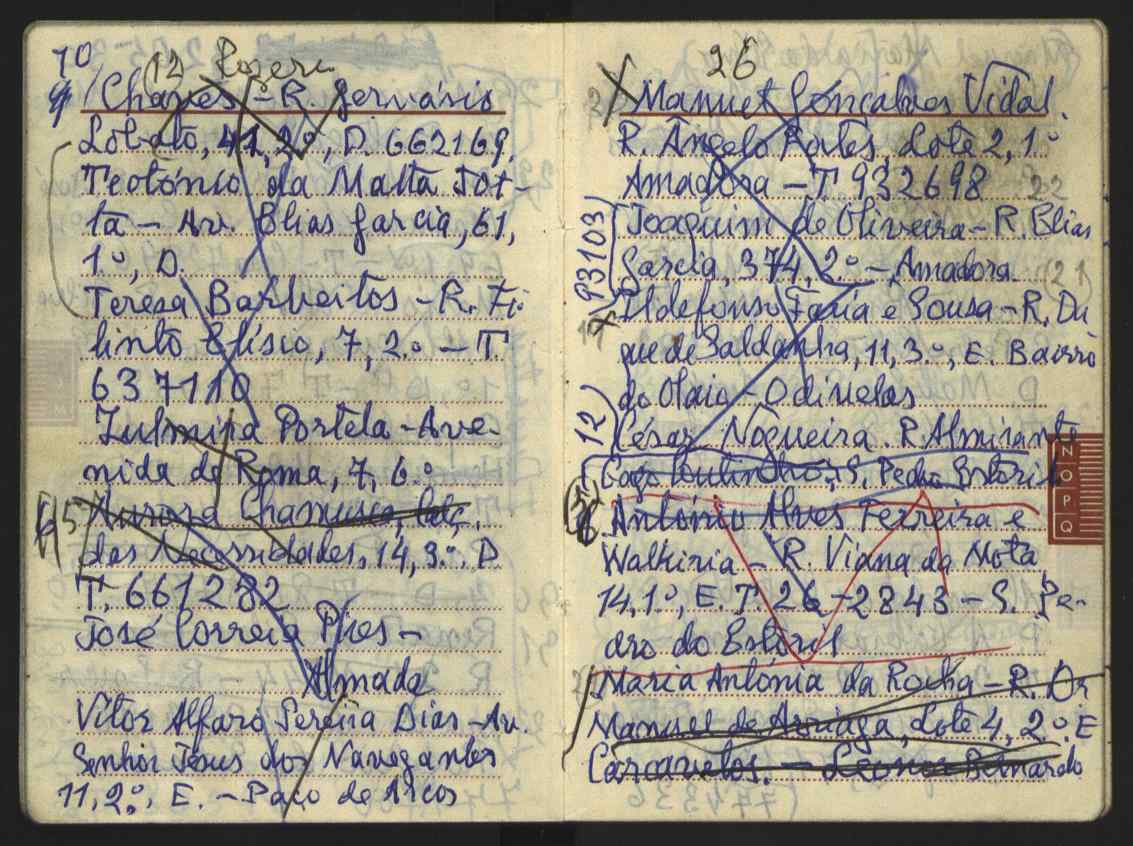 10
12 Rogeri
Chaves - R. Gervásio
Lobato, 41, 2º, D. 662169.
Teotónio da Malta Tot-
ta - Av. Elias Garcia, 61,
1.º, D.
Teresa Barbeitos - R. Fi-
linto Elísio, 7, 2.º - T.
637110
Zulmira Portela - Ave-
nida de Roma, 7, 6.º
15 Aurora Chamusca, Calç.
das Necessidades, 14, 3.º, D
T. 661282
José Correia Pires -
Almada
Vítor Alfaro Pereira Dias - Av.
Senhor Jesus dos Navegantes
11, 2.º, E. - Paço de Arcos
26
Manuel Gonçalves Vidal.
R. Ângelo Fortes, Lote 2, 1.º
Amadora - T. 932698 22
Joaquim de Oliveira - R. Elias
Garcia, 374, 2.º - Amadora. 21
93103
Ildefonso Faria e Sousa - R. Du
que de Saldanha, 11, 3.º, E. Bairro
do Olaio - Odivelas
12
César Nogueira. R. Almirante
Gago Coutinho, S. Pedro Estoril
António Alves Ferreira e
Walkiria - R. Viana da Mota
14, 1.º, E. T. 26-2843 - S. Pe-
dro do Estoril
Maria Antónia da Rocha - R. Dr
Manuel de Arriaga, Lote 4, 2.º E
Carcavelos. - Leonor Bernardo
N
O
P
Q